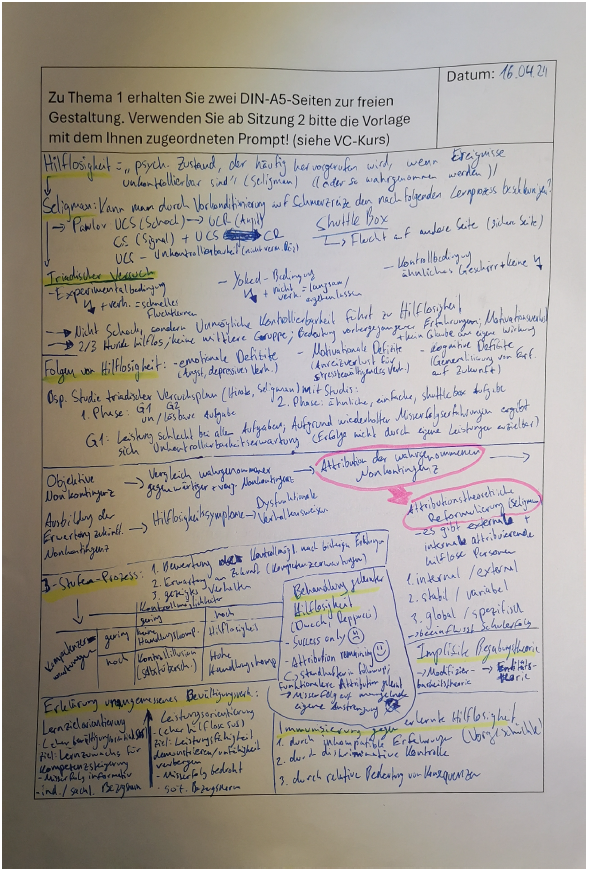 Zu Thema 1 erhalten Sie zwei DIN-A5-Seiten zur freien
Gestaltung. Verwenden Sie ab Sitzung 2 bitte die Vorlage
mit dem Ihnen zugeordneten Prompt! (siehe VC-Kurs)
Datum: 16.04.24
Hilflosigkeit = "psych. Zustand, der häufig hervorgerufen wird, wenn Ereignisse
unkontrollierbar sind" (Seligman) (oder so wahrgenommen werden)
Seligman: Kann man durch Vorkonditionierung auf Schmerzreize den nachfolgenden Lernprozess
→ Pawlow UCS (Schock) → UCR (Angst)
CS (Signal) + UCS → CR
UCS - Unkontrollierbarkeit
Shuttle Box
→ Flucht auf andere Seite (sichere Seite)
Triadischer Versuch
- Experimentalbedingung
+ verh. = schnelles
Fluchtlernen
- Yoked-Bedingung
+ nicht verh. = langsam/
- Kontrollbedingung
ähnliches Geschirr + keine
→ Nicht Schock, sondern Unmögliche Kontrollierbarkeit führt zu Hilflosigkeit
→ 2/3 Hunde hilflos, keine mittlere Gruppe; Bedeutung vorhergegangener Erfahrungen; Motivationsverlust
+ kein Glaube an eigene Wirkung
Folgen von Hilflosigkeit: - emotionale Defizite
(Angst, depressives Verh.)
- Motivationale Defizite
(Anreizverlust für
stressbewältigendes Verh.)
- kognitive Defizite
(Generalisierung von Erf.
auf Zukunft)
Bsp. Studie triadischer Versuchsplan (Hiroto, Seligman) mit Studis:
1. Phase: G1 G2
un/lösbare Aufgabe
2. Phase: ähnliche, einfache, shuttlebox Aufgabe
G1: Leistung schlecht bei allen Aufgaben, Aufgrund wiederholter Misserfolgserfahrungen ergibt
sich Unkontrollierbarkeitserwartung (Erfolge nicht durch eigene Leistungen erzielbar)
Objektive
Nonkontingenz
→ Vergleich wahrgenommener
gegenwärtiger + verg. Nonkontingenz
→ Attribution der wahrgenommenen
Nonkontingenz →
Ausbildung der
Erwartung zukünft.
Nonkontingenz
→ Hilflosigkeitssymptome → Dysfunktionale
Verhaltensweisen
Attributionstheoretische
Reformulierung (Seligman)
- es gibt externale +
internale attribuierende
hilflose Personen
1. internal / external
2. stabil / variabel
3. global / spezifisch
→ beeinflusst Schulerfolg
3-Stufen-Prozess: 1. Bewertung Kontrollmögl. nach bisherigen Erfahrungen
2. Erwartung an Zukunft (Kompetenzerwartungen)
3. gezeigtes Verhalten
Kontrollmöglichkeiten
gering hoch
Kompetenzerwartungen
gering keine Handlungskomp. Hilflosigkeit
hoch Kontrollillusion (Selbstübersch.) Hohe Handlungskomp.
Behandlung gelernter
Hilflosigkeit
(Dweck, Reppucci)
- Success only ☹
- Attribution remaining ☺
→ standhafter in followup;
funktionalere Attribution gelernt
→ Misserfolg auf mangelnde
eigene Anstrengung
Implizite Begabungstheorie
→ Modifizierbarkeitstheorie → Entitätstheorie
Erklärung unangemessenes Bewältigungsverh.:
Lernzielorientierung
(eher bewältigungsorientiert)
Ziel: Lernzuwachs für
Kompetenzsteigerung
- Misserfolg informativ
- ind./sachl. Bezugsn.
Leistungsorientierung
(eher hilfloses)
Ziel: Leistungsfähigkeit
demonstrieren/Unfähigkeit
verbergen
- Misserfolg bedroht
- soz. Bezugsnorm
Immunisierung gegen erlernte Hilflosigkeit
1. durch inkompatible Erfahrungen (Vorgeschichte)
2. durch diskriminative Kontrolle
3. durch relative Bedeutung von Konsequenzen